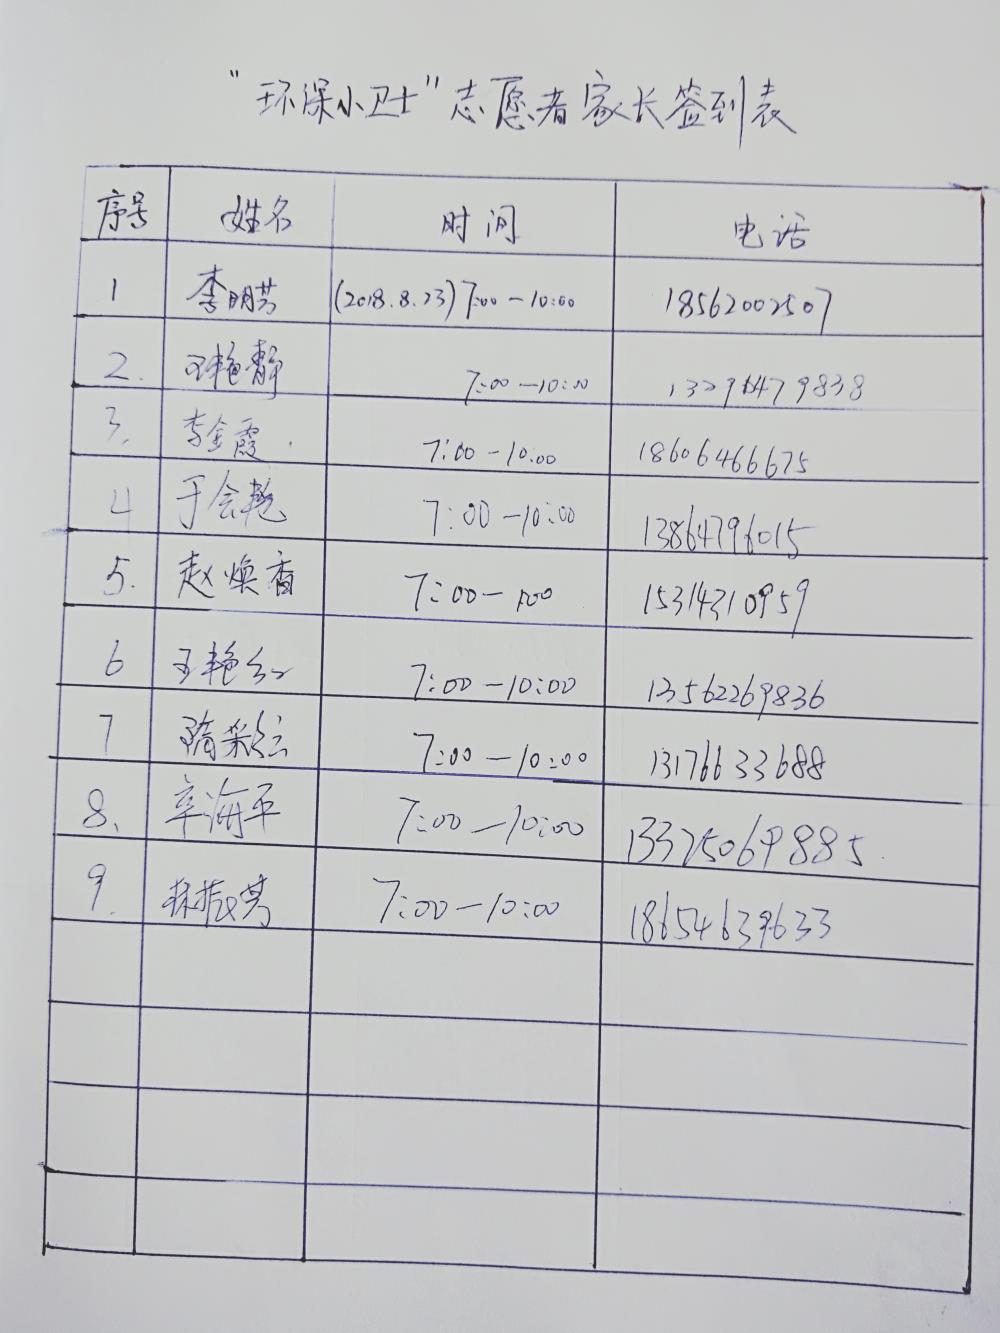 “环保小卫士”志愿者家长签到表
序号 姓名 时间 电话
1 李明芳 (2018.8.23) 7:00-10:00 18562002507
2. 王艳静 7:00-10:00
3. 李金霞 7:00-10:00 18606466675
4 于会艳 7:00-10:00 13864796015
5. 赵焕香 7:00-1:00 15314310959
6 王艳红 7:00-10:00 13562269836
7 隋彩云 7:00-10:00 13176633688
8、 辛海平 7:00-10:00 13325069885
9. 林振芳 7:00-10:00 18654639633